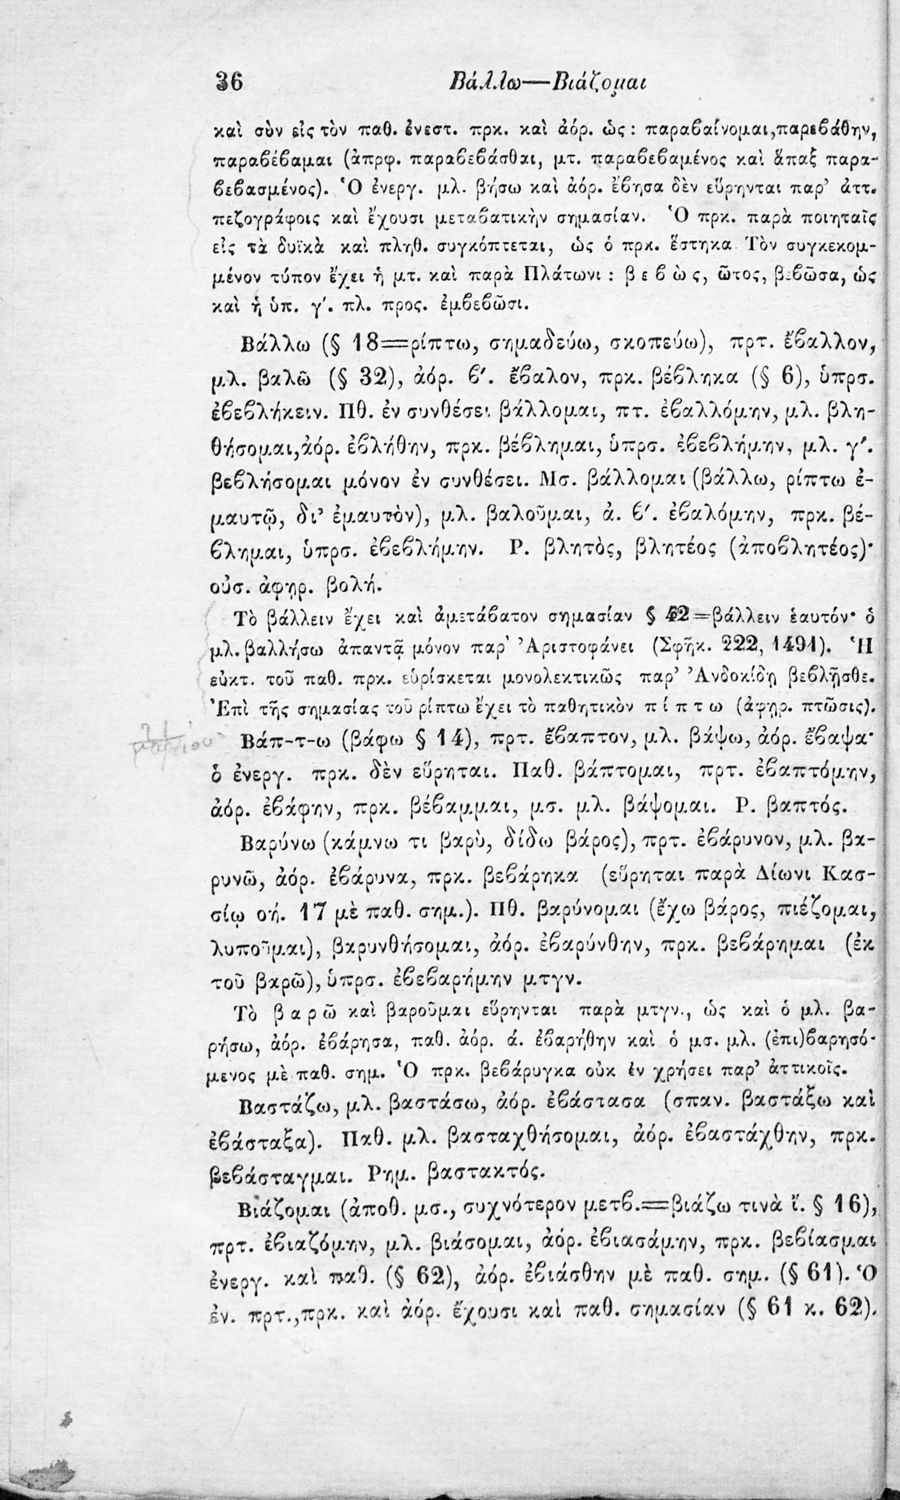 36 Βάλλω—Βιάζομαι
καὶ σὺν εἰς τὸν παθ. ἐνεστ. πρκ. καὶ ἀόρ. ὡς: παραβαίνομαι, παρεβάθην,
παραβέβαμαι (ἀπρφ. παραβεβάσθαι, μτ. παραβεβαμένος καὶ ἅπαξ παρα-
βεβασμένος). Ὁ ἐνεργ. μλ. βήσω καὶ ἀόρ. ἔβησα δὲν εὕρηνται παρ’ ἀττ.
πεζογράφοις καὶ ἔχουσι μεταβατικὴν σημασίαν. Ὁ πρκ. παρὰ ποιηταῖς
εἰς τὰ δυϊκὰ καὶ πληθ. συγκόπτεται, ὡς ὁ πρκ. ἕστηκα. Τὸν συγκεκομ-
μένον τύπον ἔχει ἡ μτ. καὶ παρὰ Πλάτωνι: βεβὼς, ῶτος, βεβῶσα, ὡς
καὶ ἡ ὑπ. γ΄. πλ. προς. ἐμβεβῶσι.
Βάλλω (§ 18=ρίπτω, σημαδεύω, σκοπεύω), πρτ. ἔβαλλον,
μλ. βαλῶ (§ 32), ἀόρ. β΄. ἔβαλον, πρκ. βέβληκα (§ 6), ὑπρσ.
ἐβεβλήκειν. Πθ. ἐν συνθέσει βάλλομαι, πτ. ἐβαλλόμην, μλ. βλη-
θήσομαι, ἀόρ. ἐβλήθην, πρκ. βέβλημαι, ὑπρσ. ἐβεβλήμην, μλ. γ΄.
βεβλήσομαι μόνον ἐν συνθέσει. Μσ. βάλλομαι (βάλλω, ρίπτω ἐ-
μαυτῷ, δι’ ἐμαυτὸν), μλ. βαλοῦμαι, ἀ. β΄. ἐβαλόμην, πρκ. βέ-
βλημαι, ὑπρσ. ἐβεβλήμην. Ρ. βλητὸς, βλητέος (ἀποβλητέος)·
οὐσ. ἀφηρ. βολή.
Τὸ βάλλειν ἔχει καὶ ἀμετάβατον σημασίαν § 42=βάλλειν ἑαυτόν· ὁ
μλ. βαλλήσω ἀπαντᾷ μόνον παρ’ Ἀριστοφάνει (Σφῆκ. 222, 1491). Ἡ
εὐκτ. τοῦ παθ. πρκ. εὑρίσκεται μονολεκτικῶς παρ’ Ἀνδοκίδῃ βεβλῇσθε.
Ἐπὶ τῆς σημασίας τοῦ ρίπτω ἔχει τὸ παθητικὸν πίπτω (ἀφηρ. πτῶσις).
Βάπ-τ-ω (βάφω § 14), πρτ. ἔβαπτον, μλ. βάψω, ἀόρ. ἔβαψα·
ὁ ἐνεργ. πρκ. δὲν εὕρηται. Παθ. βάπτομαι, πρτ. ἐβαπτόμην,
ἀόρ. ἐβάφην, πρκ. βέβαμμαι, μσ. μλ. βάψομαι. Ρ. βαπτός.
Βαρύνω (κάμνω τι βαρὺ, δίδω βάρος), πρτ. ἐβάρυνον, μλ. βα-
ρυνῶ, ἀόρ. ἐβάρυνα, πρκ. βεβάρηκα (εὕρηται παρὰ Δίωνι Κασ-
σίῳ οή. 17 μὲ παθ. σημ.). Πθ. βαρύνομαι (ἔχω βάρος, πιέζομαι,
λυποῦμαι), βαρυνθήσομαι, ἀόρ. ἐβαρύνθην, πρκ. βεβάρημαι (ἐκ
τοῦ βαρῶ), ὑπρσ. ἐβεβαρήμην μτγν.
Τὸ βαρῶ καὶ βαροῦμαι εὕρηνται παρὰ μτγν., ὡς καὶ ὁ μλ. βα-
ρήσω, ἀόρ. ἐβάρησα, παθ. ἀόρ. ά. ἐβαρήθην καὶ ὁ μσ. μλ. (ἐπι)βαρησό-
μενος μὲ παθ. σημ. Ὁ πρκ. βεβάρυγκα οὐκ ἐν χρήσει παρ’ ἀττικοῖς.
Βαστάζω, μλ. βαστάσω, ἀόρ. ἐβάστασα (σπαν. βαστάξω καὶ
ἐβάσταξα). Παθ. μλ. βασταχθήσομαι, ἀόρ. ἐβαστάχθην, πρκ.
βεβάσταγμαι. Ρημ. βαστακτός.
Βιάζομαι (ἀποθ. μσ., συχνότερον μετβ.=βιάζω τινὰ ἴ. § 16),
πρτ. ἐβιαζόμην, μλ. βιάσομαι, ἀόρ. ἐβιασάμην, πρκ. βεβίασμαι
ἐνεργ. καὶ παθ. (§ 62), ἀόρ. ἐβιάσθην μὲ παθ. σημ. (§ 61). Ὁ
ἐν. πρτ., πρκ. καὶ ἀόρ. ἔχουσι καὶ παθ. σημασίαν (§ 61 κ. 62).